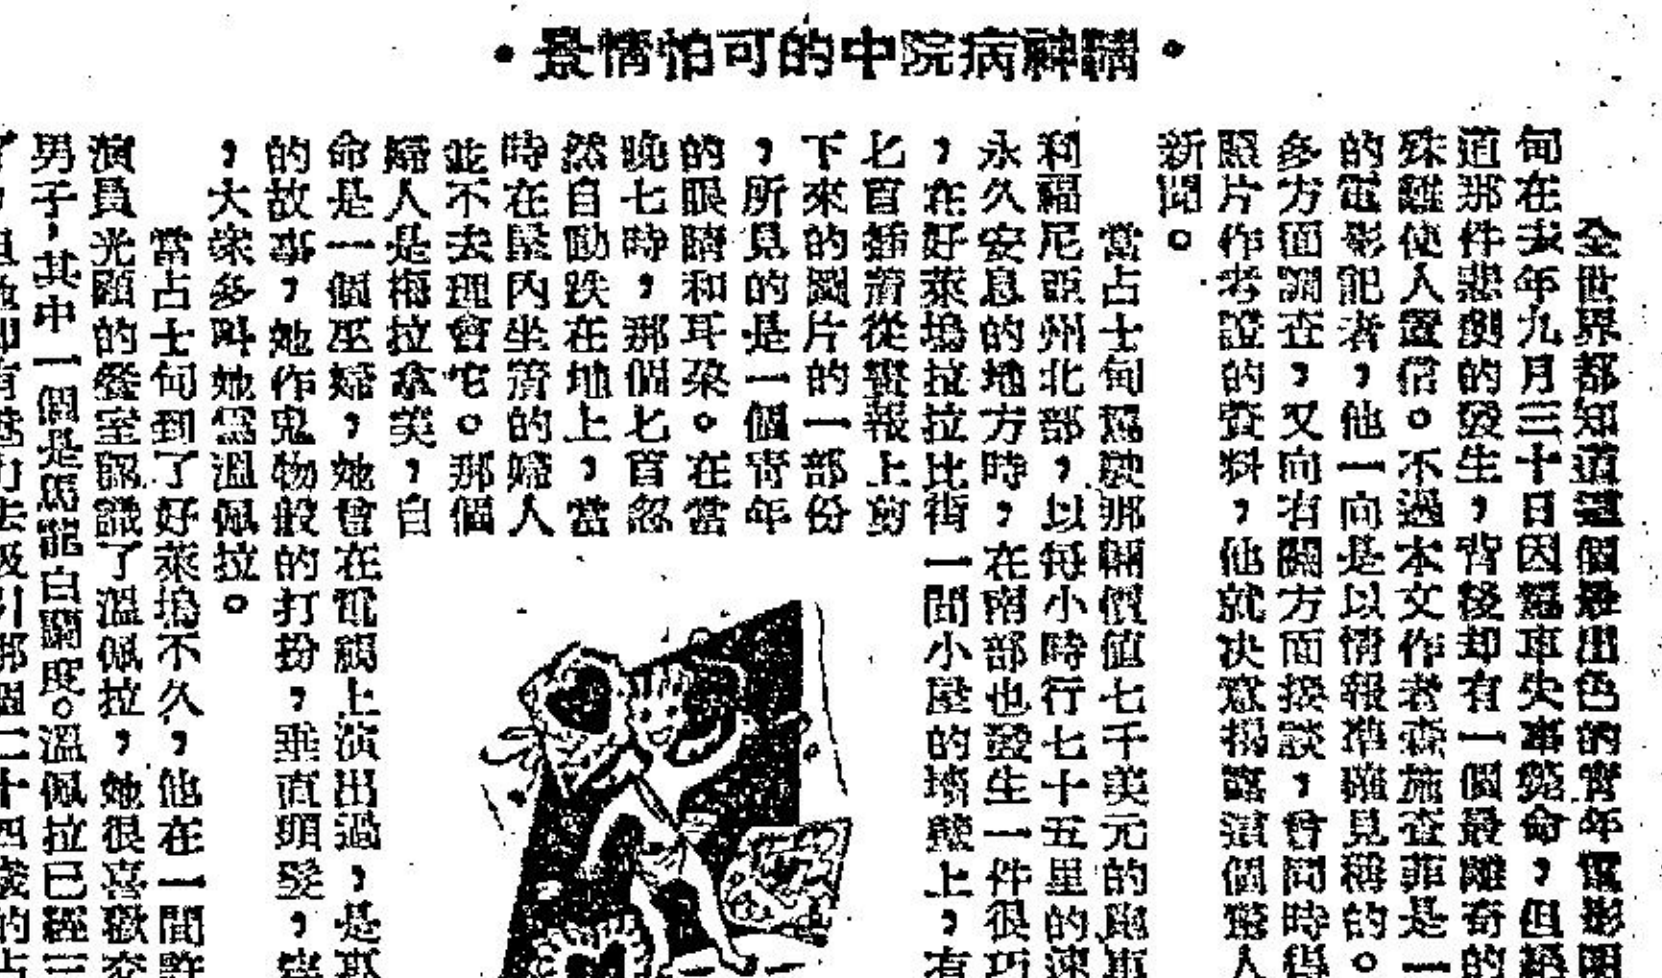 •精神病院中的可怕情景•
全世界都知道這個最出色的青年電影明
甸在去年九月三十日因駕車失事斃命，但
道那件悲劇的發生，背後却有一個最離奇的
殊難使人置信。不過本文作者森施查菲是一
的電影記者，他一向是以情報準確見稱的。
多方面調查，又向有關方面接談，曾同時得
照片作考證的資料，他就決意揭露這個驚人
新聞。
當占士甸駕駛那輛價值七千美元的跑車
利福尼亞州北部，以每小時行七十五里的速
永久安息的地方時，在南部也發生一件很巧
，在好萊塢拉拉比街一間小屋的墻壁上，有
匕首插着從畫報上剪
下來的圖片的一部份
，所見的是一個青年
的眼睛和耳朶。在當
晚七時，那個匕首忽
然自動跌在地上，當
時在屋內坐着的婦人
並不去理會它。那個
婦人是梅拉拿美，自
命是一個巫婦，她曾在電視上演出過，是
的故事，她作鬼物般的打扮，垂直頭髮，
，大家多叫她爲溫佩拉。
當占士甸到了好萊塢不久，他在一間
演員光顧的餐室認識了溫佩拉，她很喜歡交
男子，其中一個是馬龍白蘭度。溫佩拉已經三
去吸引那個二十四歲的占